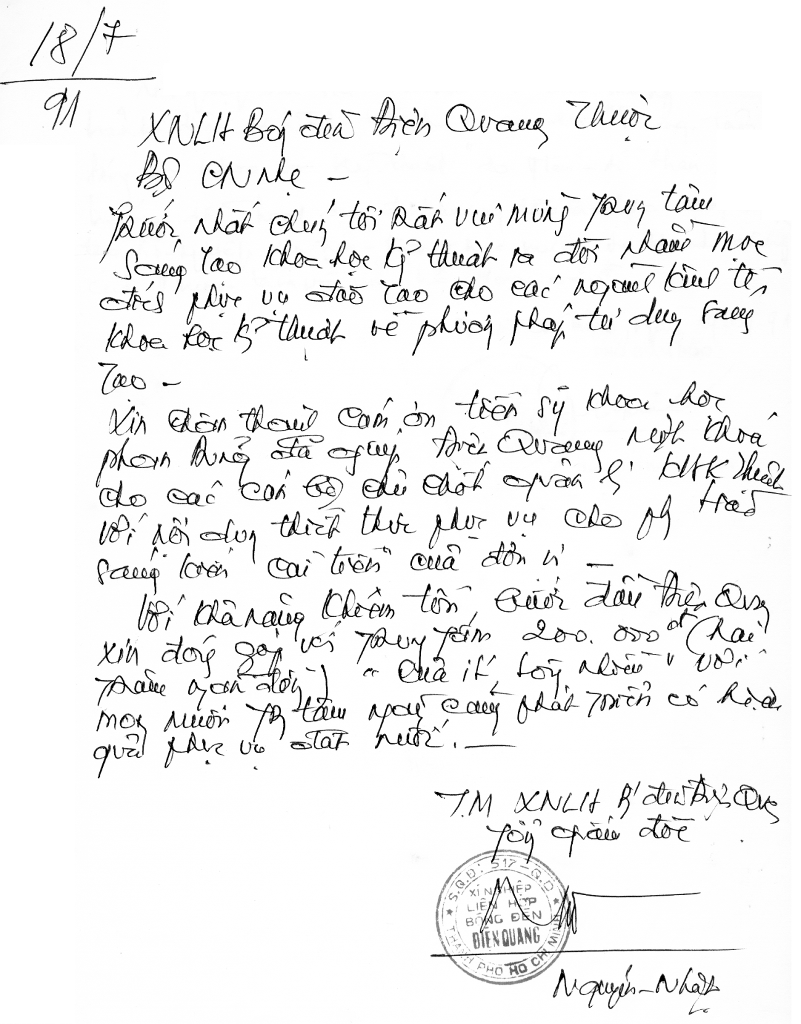 18/7
91
XNLH Bóng đèn Điện Quang Thuộc
Bộ CN Nhẹ -
Trước nhất chúng tôi rất vui mừng Trung tâm
Sáng Tạo khoa học kỹ thuật ra đời nhằm mục
đích phục vụ đào tạo cho các người kinh tế
khoa học kỹ thuật về phương pháp tư duy sáng
Tạo -
Xin chân thành cảm ơn tiến sỹ khoa học
phan Dũng đã giúp Điện Quang một khoá
cho các cán bộ chủ chốt quản lý KHK thuật
với nội dung thiết thực phục vụ cho pg trào
sáng kiến cải tiến của đơn vị -
Với khả năng khiêm tốn, bước đầu Điện Quang
xin đóng góp với Trung tâm 200.000đ (hai
trăm ngàn đồng) "của ít, lòng nhiều" với
mong muốn Tg tâm ngày càng phát triển có hiệu
quả phục vụ đất nước. -
T.M XNLH B đèn Điện Quang
Tổng giám đốc
S.Q.D: 517-Q.D
XÍ NGHIỆP
LIÊN HỢP
BÓNG ĐÈN
ĐIỆN QUANG
THÀNH PHỐ HỒ CHÍ MINH
Nguyễn-Nhật